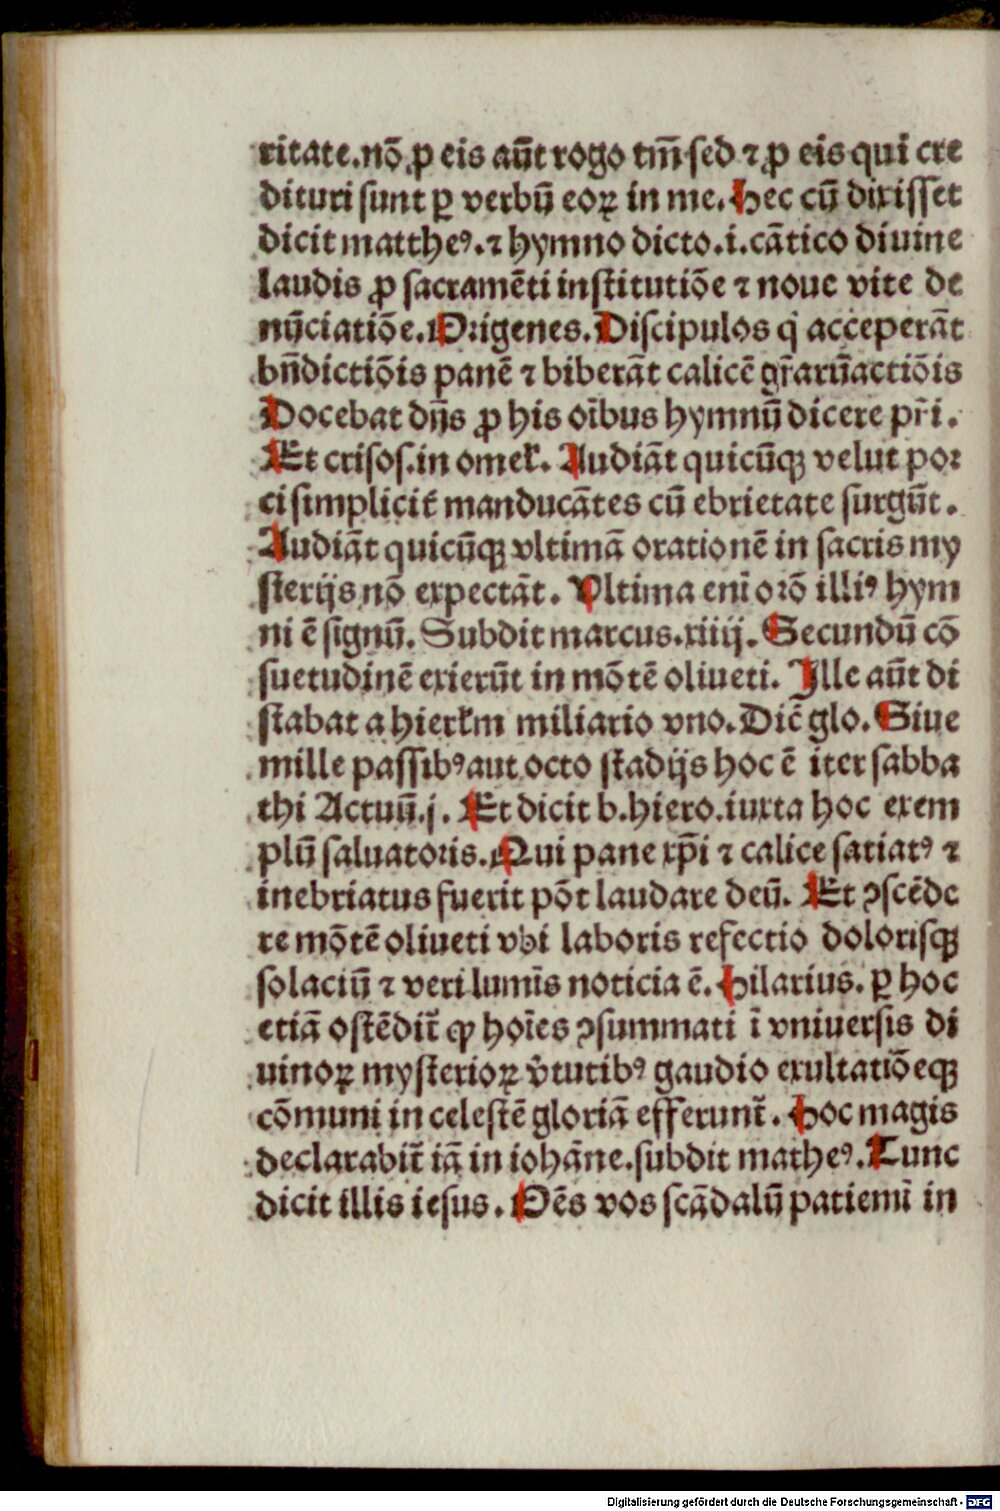 ritate.nō ꝓ eis aūt rogo tm̄ sed ⁊ ꝓ eis qui cre
dituri sunt ꝑ verbū eoꝝ in me. Hec cū dixisset
dicit mattheꝰ.⁊ hymno dicto.i.cātico diuine
laudis ꝓ sacramēti institutiōe ⁊ noue vite de
nūciatiōe. Origenes. Discipulos q̇ acceperāt
bn̄dictiōis panē ⁊ biberāt calicē gr̄aruactiōis
Docebat dn̄s ꝓ his oībus hymnū dicere pr̄i.
Et crisos.in omel'. Audiāt quicūqꝫ velut por
ci simplicit̄ manducātes cū ebrietate surgūt.
Audiāt quicūqꝫ vltimā orationē in sacris my
sterijs nō expectāt. Vltima enī orō illiꝰ hym
ni ē signū. Subdit marcus.xiiij. Secundū cō
suetudinē exierūt in mōtē oliueti. Ille aūt di
stabat a hierl'm miliario vno. Dic̄ glo. Siue
mille passibꝰ aut octo stadijs hoc ē iter sabba
thi Actuū.j. Et dicit b.hiero.iuxta hoc exem
plū saluatoris. Qui pane xp̄i ⁊ calice satiatꝰ ⁊
inebriatus fuerit pōt laudare deū. Et ꝯscēde
re mōtē oliueti vbi laboris refectio dolorisqꝫ
solaciū ⁊ veri lumīs noticia ē. Hilarius. ꝑ hoc
etiā ostēdit̄ ꝙ hoīes ꝯsummati ī vniuersis di
uinoꝝ mysterioꝝ v̇tutibꝰ gaudio exultatiōeqꝫ
cōmuni in celestē gloriā efferunt̄. Hoc magis
declarabit̄ iā in iohāne.subdit matheꝰ. Tunc
dicit illis iesus. Oēs vos scādalū patiemī in
Digitalisierung gefördert durch die Deutsche Forschungsgemeinschaft - DFG